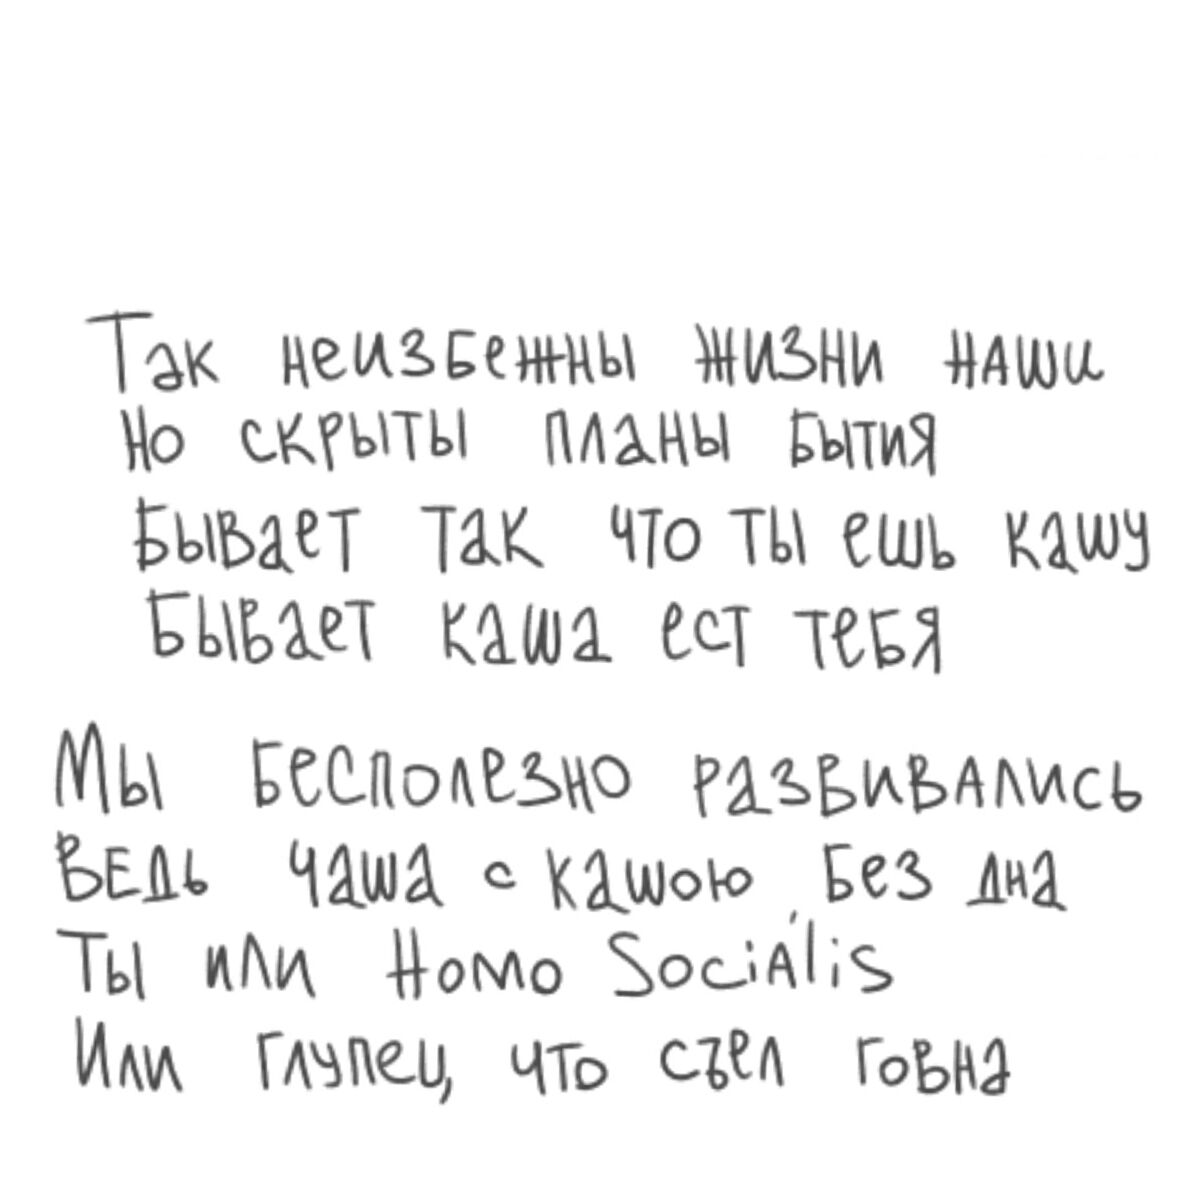 Так неизбежны жизни наши
Но скрыты планы бытия
Бывает так что ты ешь кашу
Бывает каша ест тебя
Мы бесполезно развивались
Ведь чаша с кашою без дна
Ты или Homo Sociális
Или глупец, что съел говна